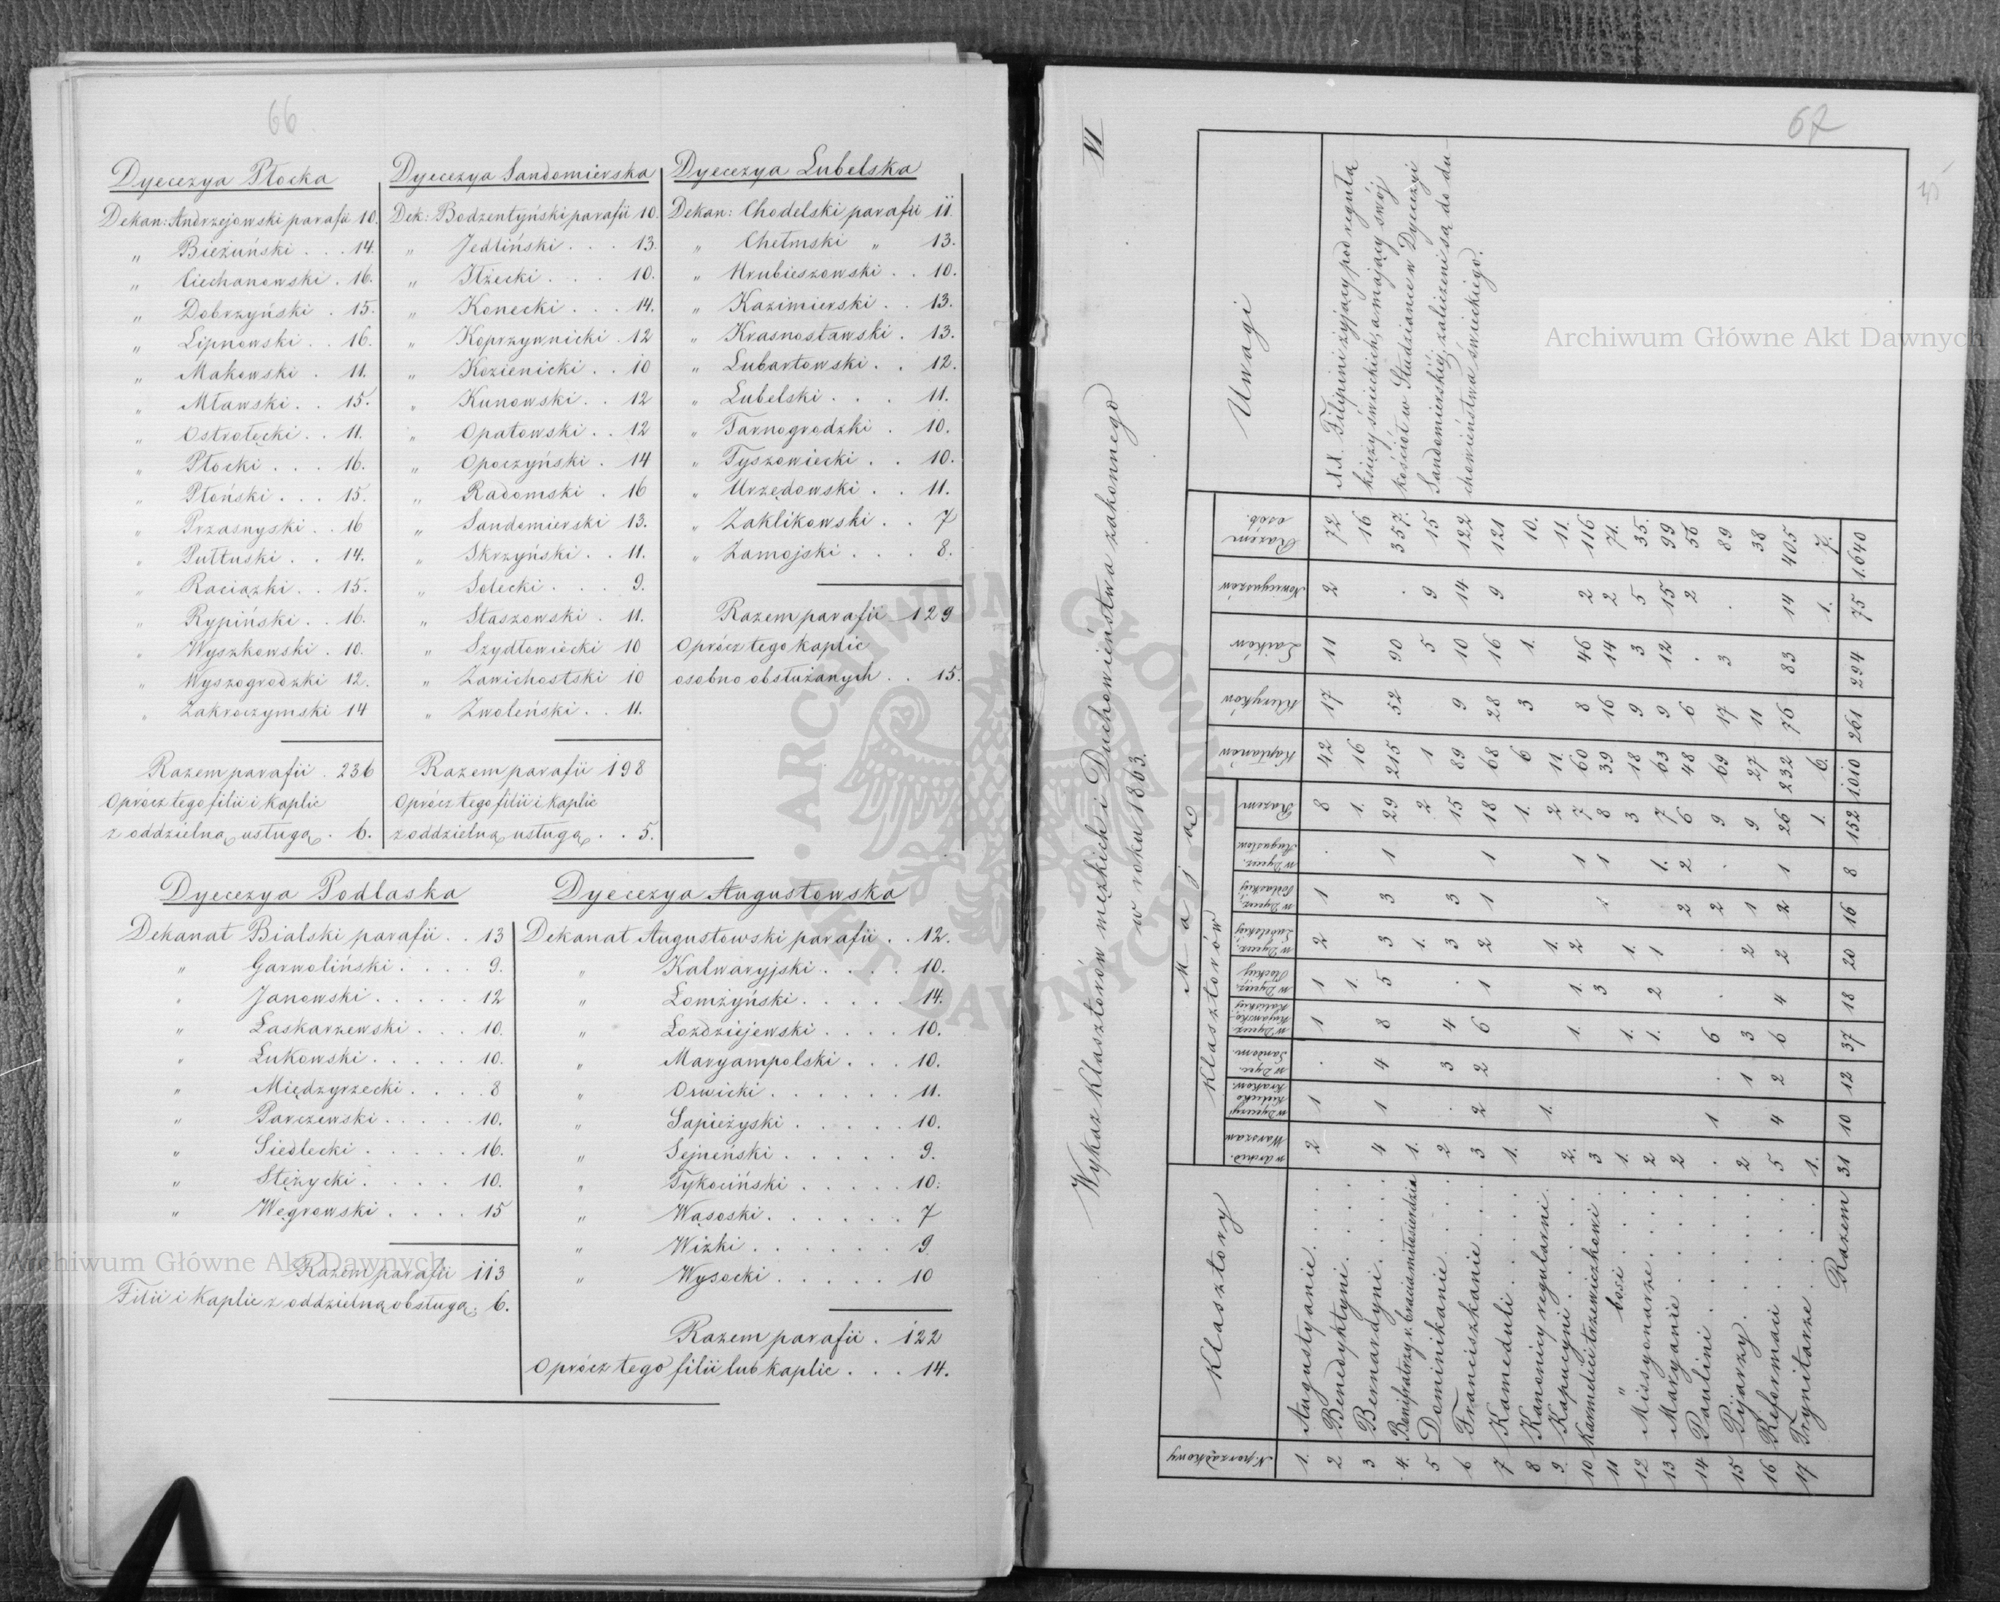 66
Dyecezya Płocka
Dekan: Andrzejowski parafii 10.
„ Bieżuński . . . 14.
„ Ciechanowski . 16.
„ Dobrzyński . 15.
„ Lipnowski . . 16.
„ Makowski . 11.
„ Mławski . . 15.
„ Ostrołęcki . . 11.
„ Płocki . . . 16.
„ Płoński . . . 15.
„ Przasnyski . . 16
„ Pułtuski . . 14.
„ Raciązki . . 15.
„ Rypiński . . 16.
„ Wyszkowski . 10.
„ Wyszogrodzki 12.
„ Zakroczymski 14
Razem parafii . 236
Oprócz tego filii i kaplic
z oddzielną usługą . 6.
Dyecezya Sandomierska
Dek: Bodzentyński parafii 10.
„ Jedliński . . . 13.
„ Iłżecki . . . 10.
„ Konecki . . . 14.
„ Koprzywnicki . 12
„ Kozienicki . . 10
„ Kunowski . . 12
„ Opatowski . . 12
„ Opoczyński . 14
„ Radomski . 16
„ Sandomierski 13.
„ Skrzyński . . 11.
„ Solecki . . . 9.
„ Staszowski . 11.
„ Szydłowiecki 10
„ Zawichostski 10
„ Zwoleński . . 11.
Razem parafii 198
Oprócz tego filii i kaplic
z oddzielną usługą . . 5.
Dyecezya Lubelska
Dekan: Chodelski parafii 11.
„ Chełmski „ 13.
„ Hrubieszowski . . 10.
„ Kazimierski . . 13.
„ Krasnostawski . 13.
„ Lubartowski . . 12.
„ Lubelski . . . 11.
„ Tarnogrodzki . 10.
„ Tyszowiecki . . 10.
„ Urzędowski . . 11.
„ Zaklikowski . . 7
„ Zamojski . . . 8.
Razem parafii 129
Oprócz tego kaplic
osobno obsłużanych . . 15.
Dyecezya Podlaska
Dekanat Bialski parafii . . 13
„ Garwoliński . . . . 9.
„ Janowski . . . . . 12
„ Łaskarzewski . . . 10.
„ Łukowski . . . . . 10.
„ Międzyrzecki . . . . 8
„ Parczewski . . . . . 10.
„ Siedlecki . . . . . 16.
„ Stężycki . . . . . 10.
„ Węgrowski . . . . 15
Razem parafii 113
Filii i kaplic z oddzielną obsługą . 6.
Dyecezya Augustowska
Dekanat Augustowski parafii . . 12.
„ Kalwaryjski . . . . 10.
„ Łomżyński . . . . . 14.
„ Łozdziejewski . . . . 10.
„ Maryampolski . . . 10.
„ Olwicki . . . . . . 11.
„ Sapieżyski . . . . . 10.
„ Sejneński . . . . . 9.
„ Tykociński . . . . . 10.
„ Wąsoski . . . . . . 7
„ Wizki . . . . . . . 9
„ Wysocki . . . . . 10
Razem parafii . 122
Oprócz tego filii lub kaplic . . . 14.
67
VI
Wykaz Klasztorów męzkich i Duchowieństwa zakonnego
w roku 1863.
N: porządkowy Klasztory Mają Uwagi
Klasztorów Kapłanów Kleryków Laików Nowicyuszów Razem osób.
w Arched. Warszaw w Dyecezyi Kielecko Krakow. w Dyec. Sandom. w Dyecez. Kujawsko-Kaliskiej w Dyecez. Płockiej w Dyecez. Lubelskiej w Dyecez. Podlaskiej w Dyecez. Augustow. Razem
1. Augustyanie . . . 2 1 . 1 1 2 1 . 8 42 17 11 2 72
2 Benedyktyni . . . 1. 1. 16 16
3 Bernardyni . . . 4 1 4 8 5 3 3 1 29 215 52 90 . 357.
4. Bonifratrzy v. bracia miłosierdzia 1. 1. 2 1 5 9 15
5 Dominikanie . . . 2 . 3 4 . 3 3 15 89 9 10 14 122
6 Franciszkanie . . . 3 2 2 6 1 2 1 1 18 68 28 16 9 121
7 Kameduli . . . 1. 1. 6 3 1. 10.
8 Kanonicy regularni . 1. 1. 2 11. 11.
9. Kapucyni . . . 2. 1. 1. 2 1 7 60 8 46 2 116
10 Karmelici trzewiczkowi . 3 3 1 1 8 39 16 14 2 71.
11 „ bosi . . . 1. 1. 1. 3 18 9 3 5 35.
12 Missyonarze . . . 2 1. 2 1 1. 7 63 9 12 15 99
13 Maryanie . . . 2 2 2 6 48 6 . 2 56
14 Paulini . . . . 1 . 6 . 2 . 9 69 17 3 . 89
15 Pijarzy . . . 2 1 3 2 1 9 27 11 38
16 Reformaci . . . 5 4 2 6 4 2 2 1 26 232 76 83 14 405
17 Trynitarze . . 1. 1. 6. 1. 7.
Razem 31 10 12 37 18 20 16 8 152 1010 261 294 75 1.640
XX. Filipini żyjący pod regułą
księży świeckich, a mający swój
kościół w Studziannie w Dyecezyi
Sandomierskiej, zaliczeni są do du-
chowieństwa świeckiego.
Archiwum Główne Akt Dawnych
Archiwum Główne Akt Dawnych
ARCHIWUM GŁÓWNE AKT DAWNYCH